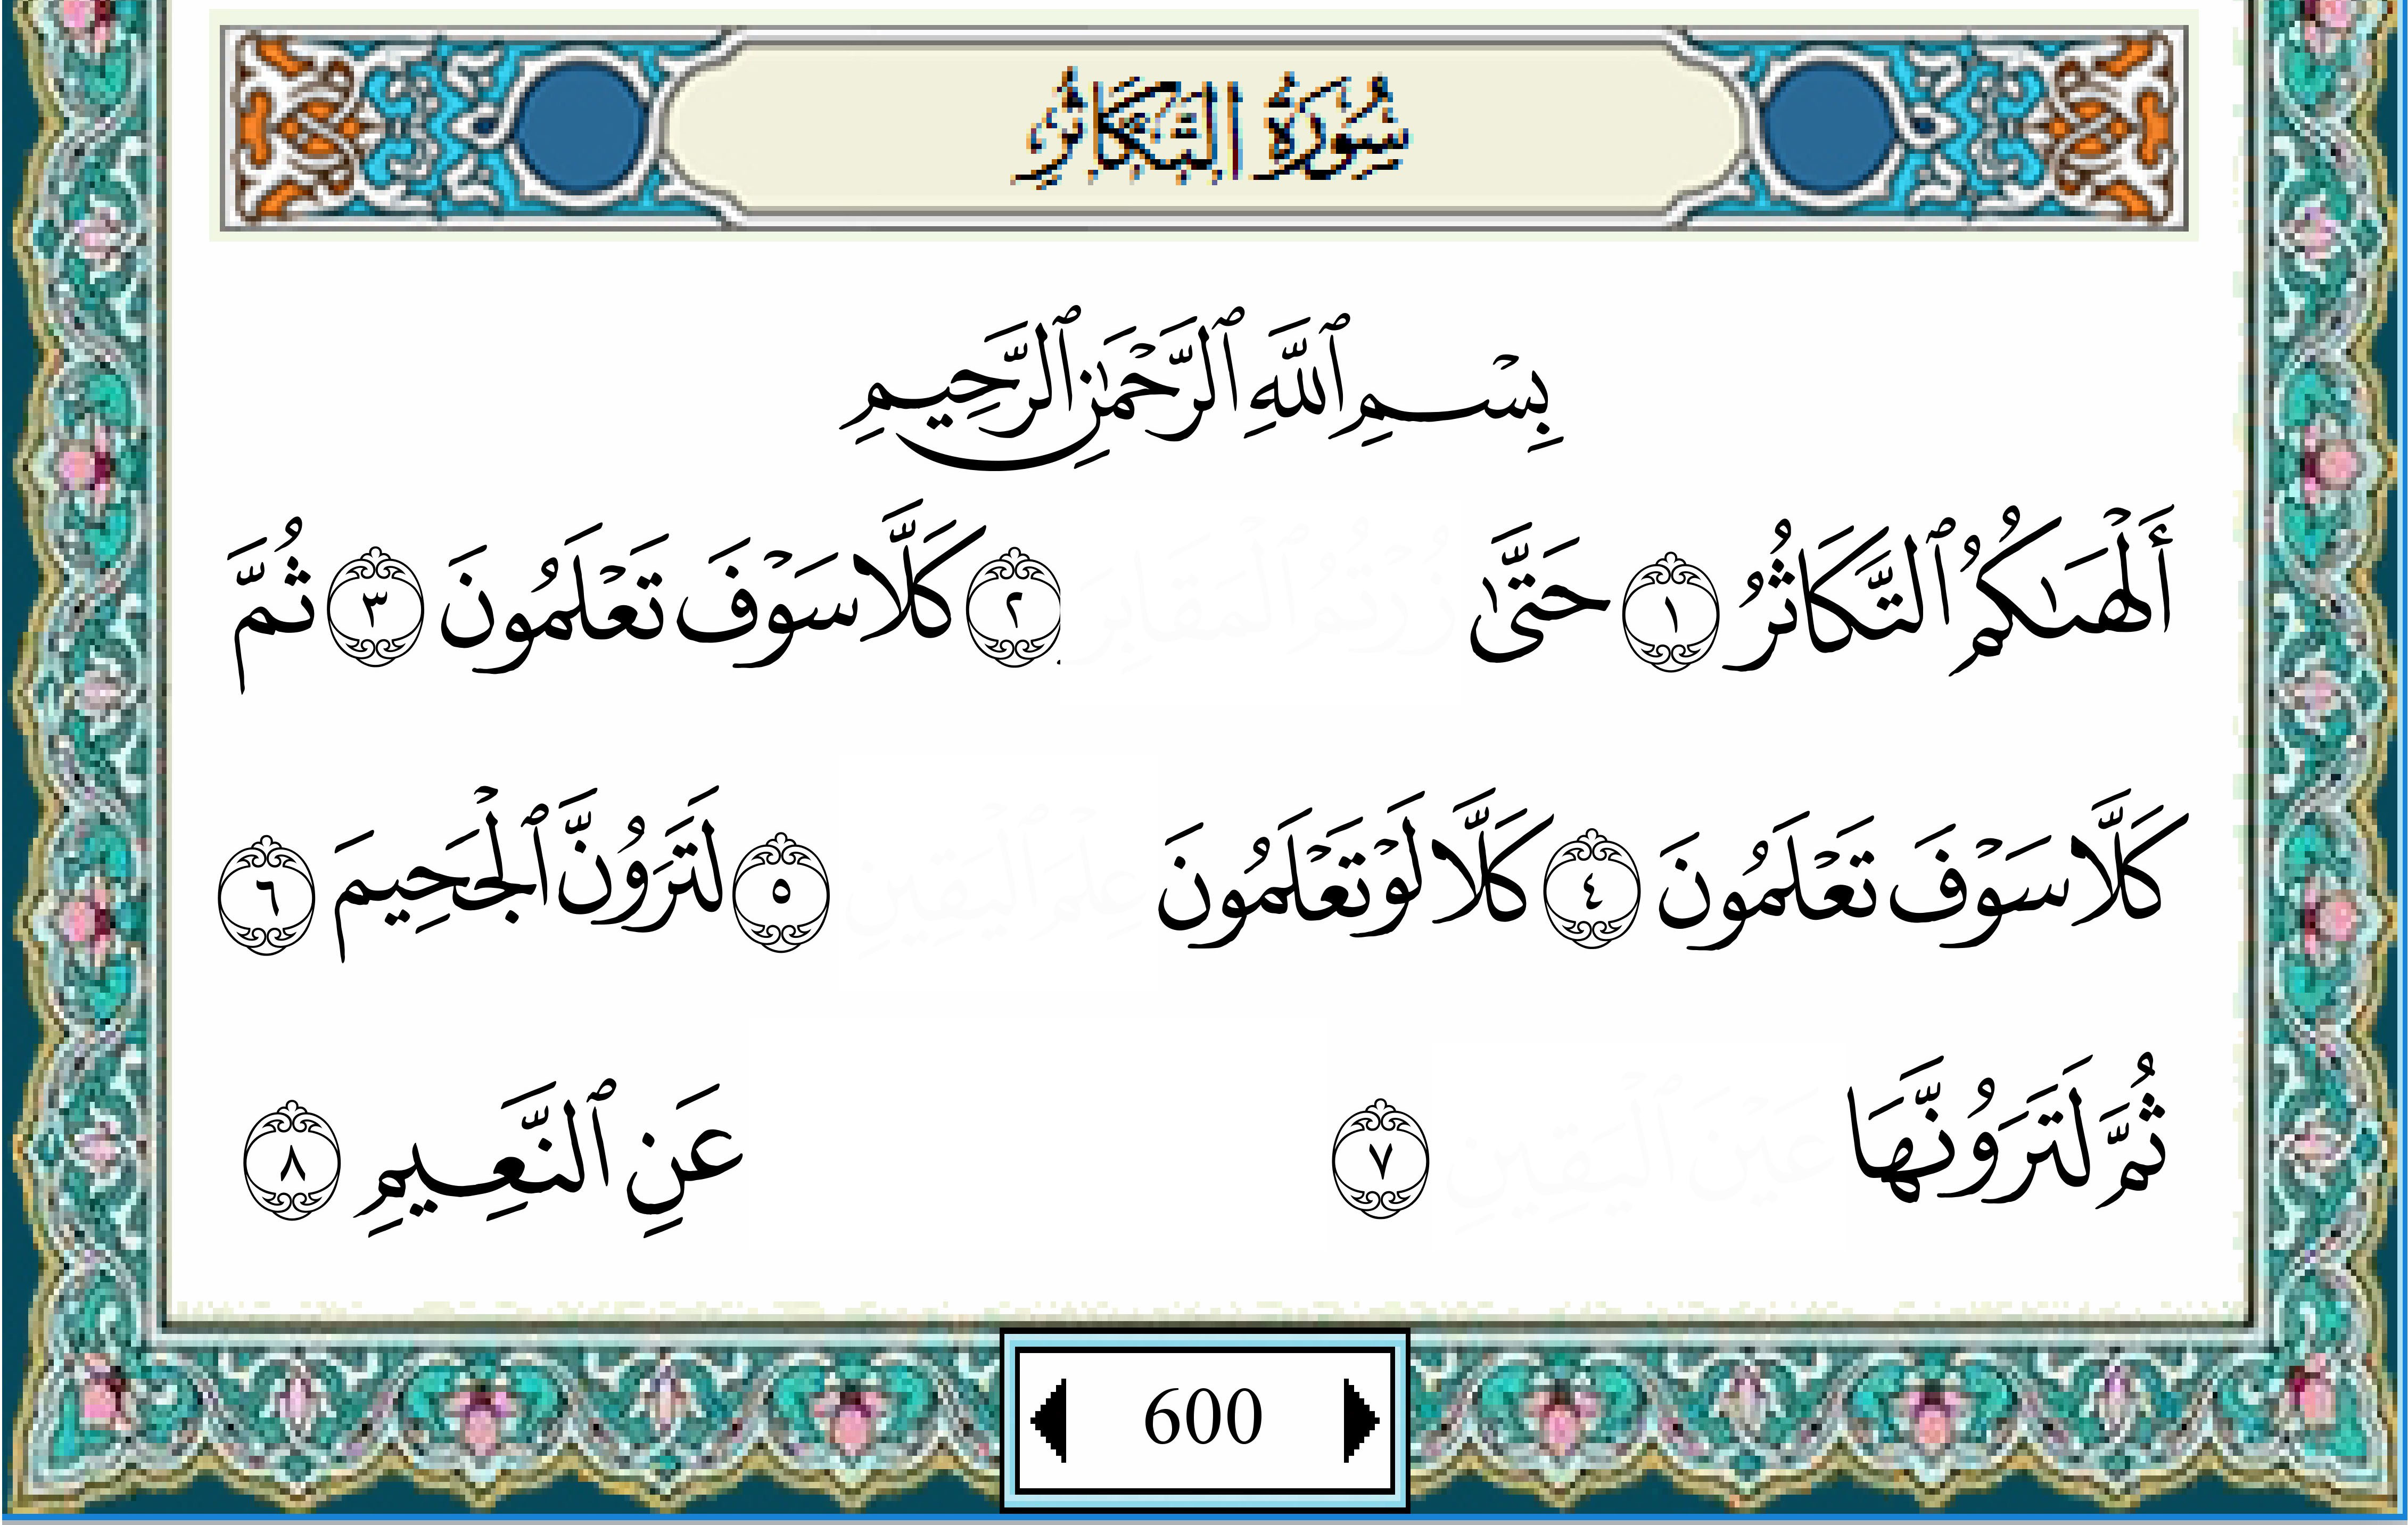 سُورَةُ التَّكَاثُرِ
بِسْمِ ٱللَّهِ ٱلرَّحْمَٰنِ ٱلرَّحِيمِ
أَلْهَىٰكُمُ ٱلتَّكَاثُرُ ١ حَتَّىٰ ٢ كَلَّا سَوْفَ تَعْلَمُونَ ٣ ثُمَّ
كَلَّا سَوْفَ تَعْلَمُونَ ٤ كَلَّا لَوْ تَعْلَمُونَ ٥ لَتَرَوُنَّ ٱلْجَحِيمَ ٦
ثُمَّ لَتَرَوُنَّهَا ٧ عَنِ ٱلنَّعِيمِ ٨
600